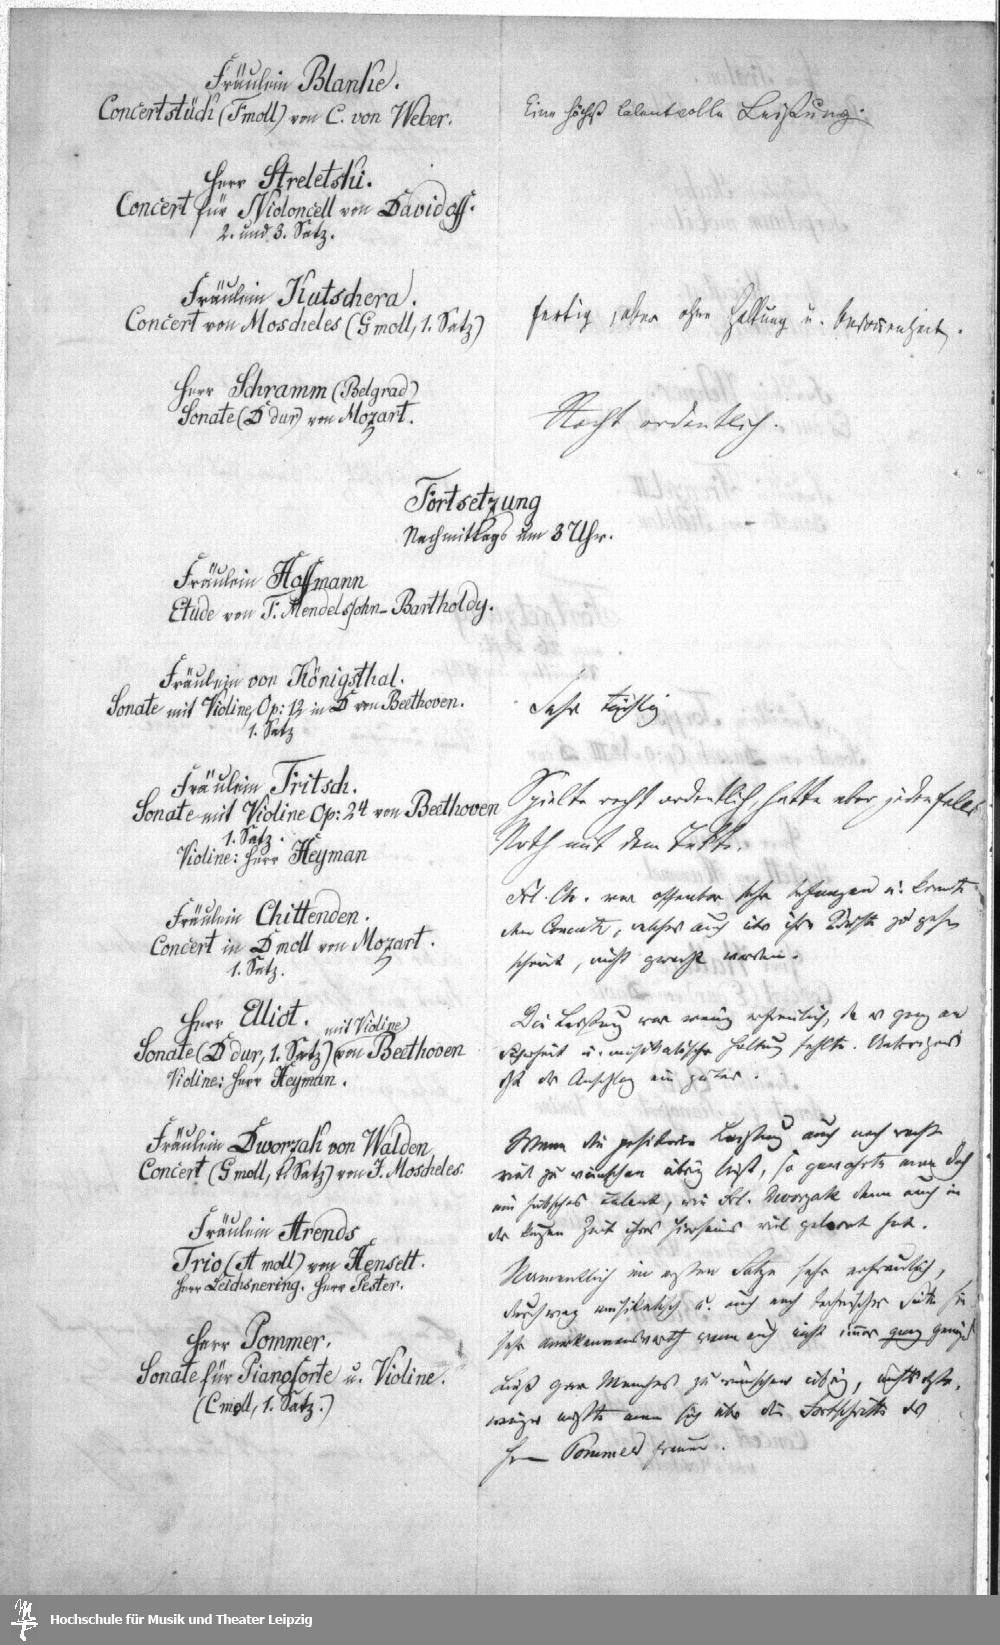 Fräulein Blanke.
Concertstück (Fmoll) von C. von Weber.
Eine höchst talentvolle Leistung.
Herr Streletski.
Concert für Violoncell von Davidoff.
2. und 3. Satz.
Fräulein Kutschera.
Concert von Moscheles (Gmoll, 1. Satz)
fertig, aber ohne Haltung u. Besonnenheit.
Herr Schramm (Belgrad)
Sonate (D dur) von Mozart.
Recht ordentlich.
Fortsetzung
Nachmittags um 3 Uhr.
Fräulein Hoffmann
Etude von F. Mendelssohn-Bartholdy.
Fräulein von Königsthal.
Sonate mit Violine, Op: 12 in D von Beethoven.
1. Satz
Sehr tüchtig
Fräulein Fritsch.
Sonate mit Violine Op: 24 von Beethoven
1. Satz.
Violine: Herr Heyman
Spielte recht ordentlich, hatte aber jedenfalls
Noth mit dem Takte.
Fräulein Chittenden.
Concert in D moll von Mozart.
1. Satz.
Frl. Ch. war offenbar sehr befangen u. konnte
dem Concerte, welches auch über ihre Kräfte zu gehen
scheint, nicht gerecht werden.
Herr Elliot.
mit Violine
Sonate (D dur, 1. Satz) von Beethoven
Violine: Herr Heyman.
Die Leistung war wenig erfreulich, da es ganz an
Sicherheit u. musikalischer Haltung fehlte. Uebrigens
ist der Anschlag ein guter.
Fräulein Dworzak von Walden
Concert (G moll, 1. Satz) von J. Moscheles.
Wenn die gestrige Leistung auch noch recht
viel zu wünschen übrig ließ, so gewahrte man doch
ein hübsches Talent, wie Frl. Dworzak denn auch in
der kurzen Zeit ihres Hierseins viel gelernt hat.
Fräulein Arends
Trio (A moll) von Henselt.
Herr Leichsnering. Herr Pester.
Namentlich im ersten Satze sehr erfreulich,
durchweg musikalisch u. auch nach technischer Seite hin
sehr anerkennenswerth wenn auch nicht immer ganz genügend
Herr Pommer.
Sonate für Pianoforte u. Violine.
(C moll, 1. Satz.)
Ließ gar Manches zu wünschen übrig, nichtsdesto-
weniger mußte man sich über die Fortschritte des
Herrn Pommer freuen.
Hochschule für Musik und Theater Leipzig